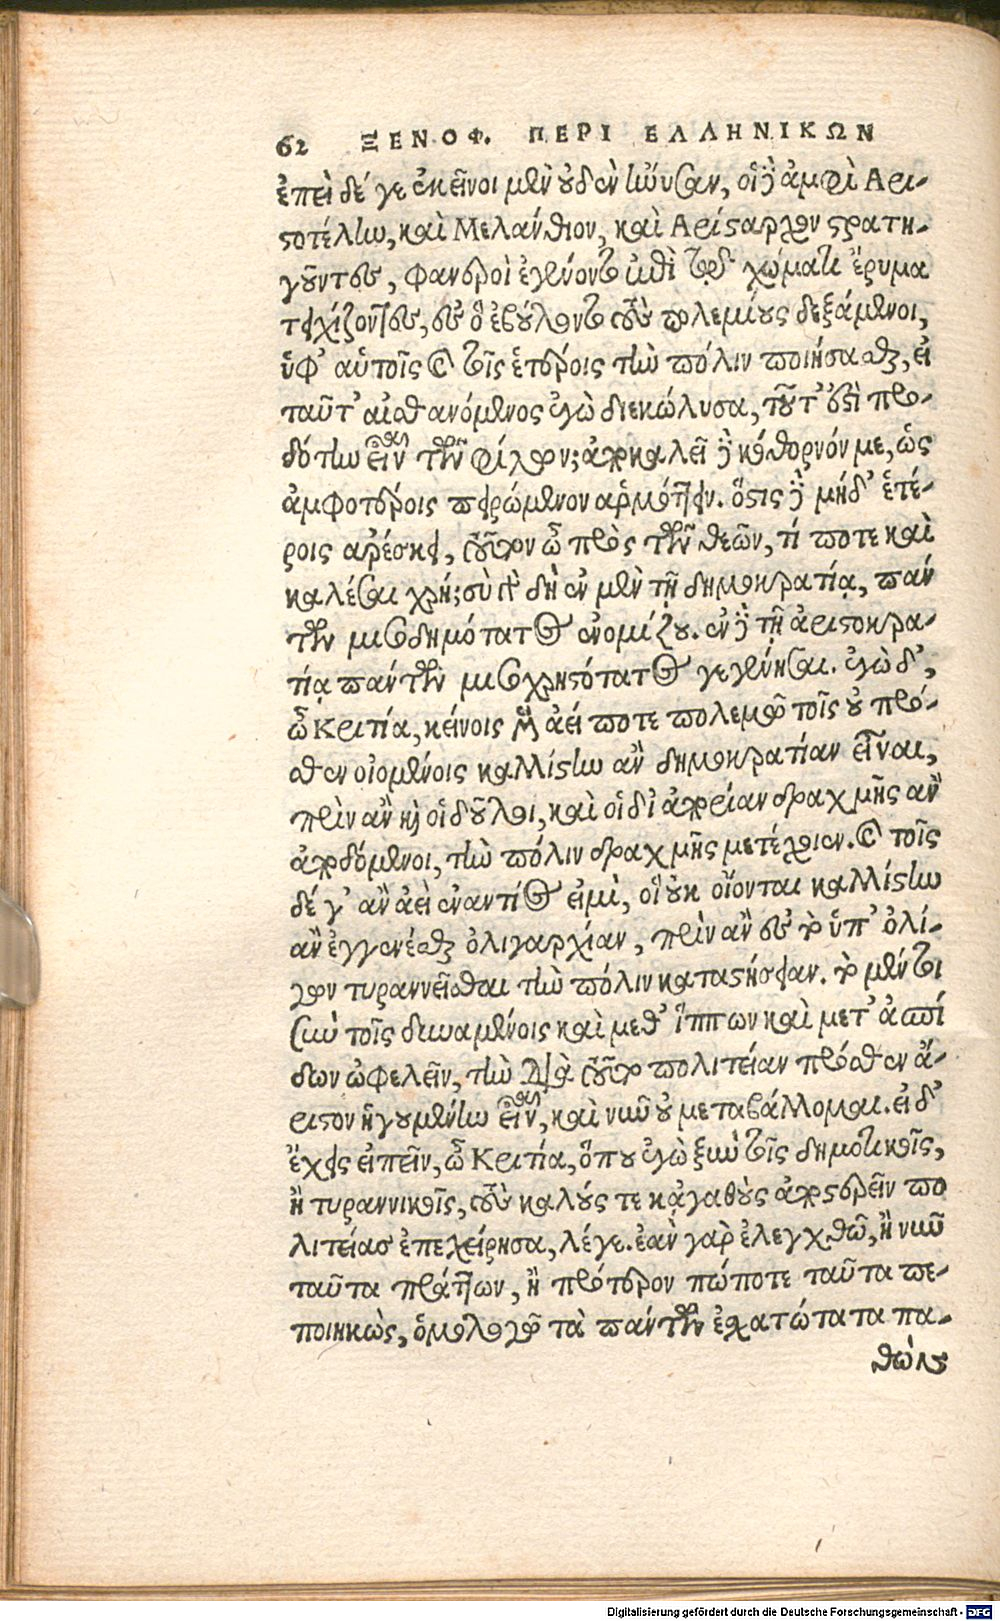 62 ΞΕΝΟΦ. ΠΕΡΙ ΕΛΛΗΝΙΚΩΝ
ἐπεὶ δέ γε ἐκεῖνοι μὲν οὐδὲν ἤνυσαν, οἱ δὲ ἀμφὶ Ἀρι-
στοτέλην, καὶ Μελάνθιον, καὶ Ἀρίσταρχον στρατη-
γοῦντες, φανεροὶ ἐγένοντο ἐπὶ τῷ χώματι ἔρυμα
τειχίζοντες, ἐς ὃ ἐβούλοντο τοὺς πολεμίους δεξάμενοι,
ὑφ' αὑτοῖς καὶ τοῖς ἑτέροις τὴν πόλιν ποιήσασθαι, εἰ
ταῦτ' αἰσθανόμενος ἐγὼ διεκώλυσα, τοῦτ' ἐστὶ προ-
δότην εἶναι τῶν φίλων; ἀποκαλεῖ δὲ κόθορνόν με, ὡς
ἀμφοτέροις πειρώμενον ἁρμόττειν. ὅστις δὲ μήδ' ἑτέ-
ροις ἀρέσκει, τοῦτον ὦ πρὸς τῶν θεῶν, τί ποτε καὶ
καλέσαι χρή; σὺ γὰρ δὴ ἐν μὲν τῇ δημοκρατίᾳ, πάν
των μισοδημότατος ἐνομίζου. ἐν δὲ τῇ ἀριστοκρα-
τίᾳ πάντων μισοχρηστότατος γεγένησαι. ἐγὼ δ',
ὦ Κριτία, κείνοις μὲν ἀεί ποτε πολεμῶ τοῖς οὐ πρό-
σθεν οἰομένοις καλλίστην ἂν δημοκρατίαν εἶναι,
πρὶν ἂν καὶ οἱ δοῦλοι, καὶ οἱ δι' ἀπορίαν δραχμῆς ἂν
ἀποδόμενοι, τὴν πόλιν δραχμῆς μετέχοιεν. καὶ τοῖς
δέ γ' ἂν ἀεὶ ἐναντίος εἰμὶ, οἳ οὐκ οἴονται καλλίστην
ἂν ἐγγενέσθαι ὀλιγαρχίαν, πρὶν ἂν ἐς τὸ ὑπ' ὀλί-
γων τυραννεῖσθαι τὴν πόλιν καταστήσειαν. τὸ μέντοι
σὺν τοῖς δυναμένοις καὶ μεθ' ἵππων καὶ μετ' ἀσπί
δων ὠφελεῖν, τὴν διὰ τούτων πολιτείαν πρόσθεν ἄ-
ριστον ἡγουμένην εἶναι, καὶ νῦν οὐ μεταβάλλομαι. εἰ δ'
ἔχεις εἰπεῖν, ὦ Κριτία, ὅπου ἐγὼ ξὺν τοῖς δημοτικοῖς,
ἢ τυραννικοῖς, τοὺς καλούς τε κἀγαθοὺς ἀποστερεῖν πο
λιτείας ἐπεχείρησα, λέγε. ἐὰν γὰρ ἐλεγχθῶ, ἢ νῦν
ταῦτα πράττων, ἢ πρότερον πώποτε ταῦτα πε-
ποιηκὼς, ὁμολογῶ τὰ πάντων ἐσχατώτατα πα-
θὼν